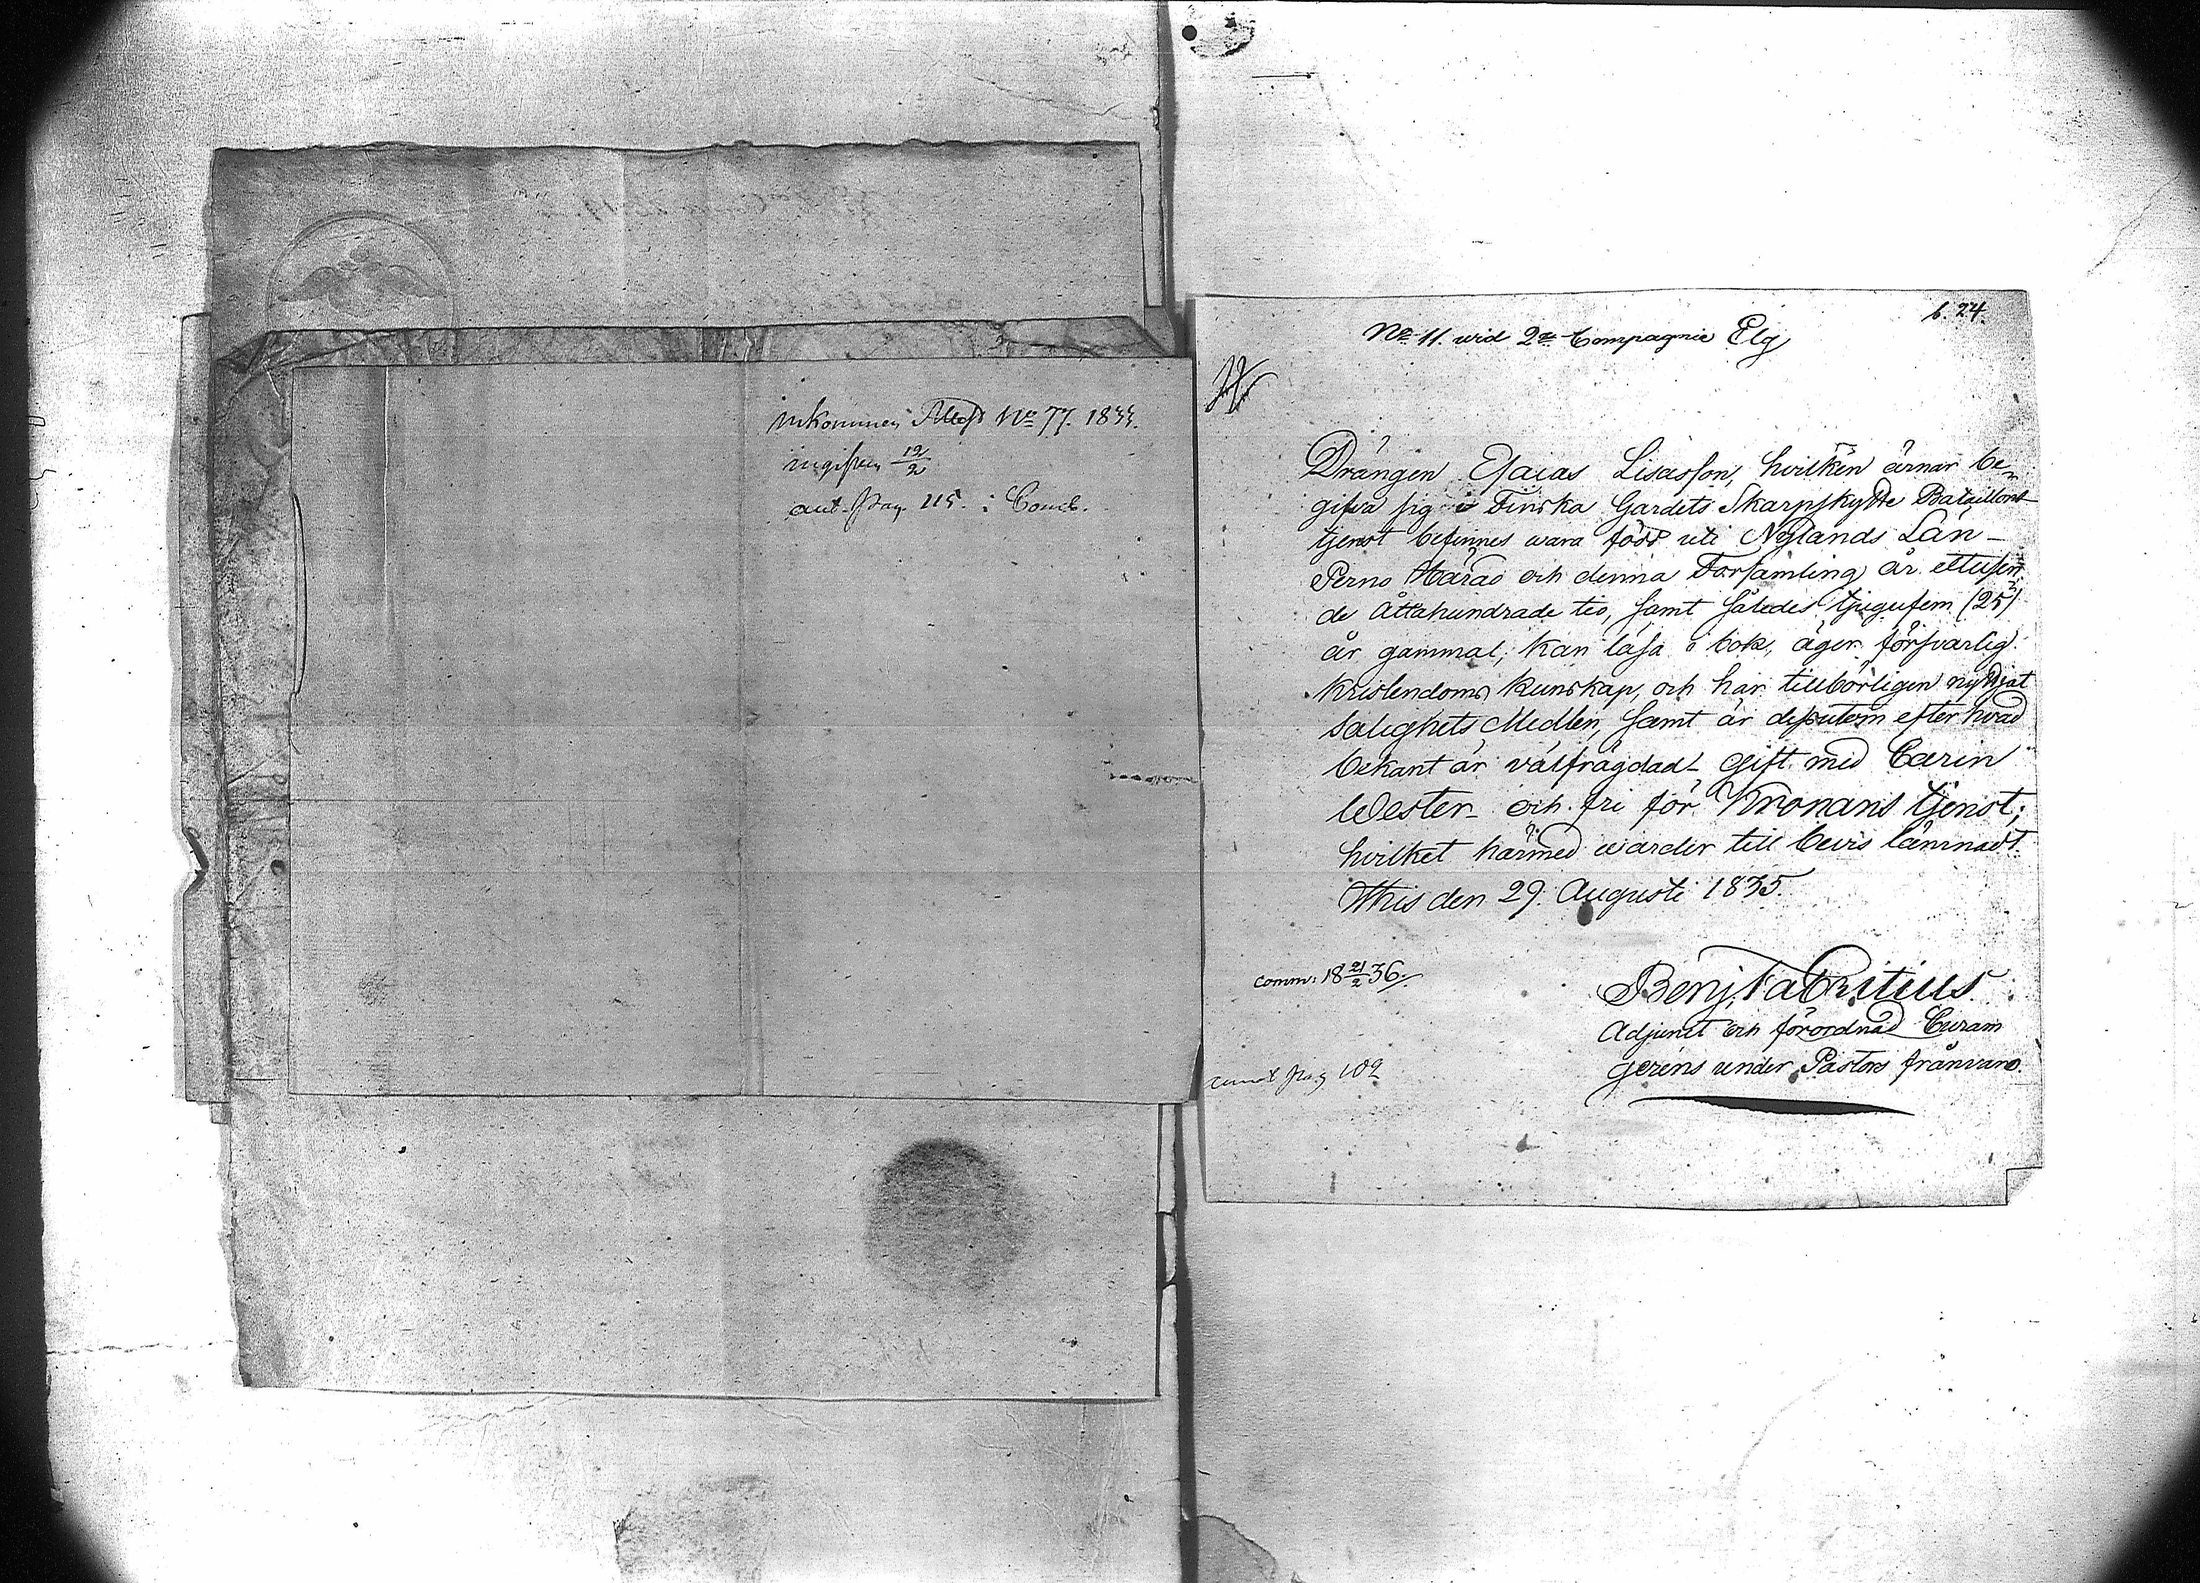 inkommen Attest No 77. 1833.
ingifven 12/2
ant. pag. 115. i Comb.
b. 24.
No 11. wid 2e Compagnie Elg
Drängen Esaias Lisasson, hvilken ärnar be-
gifva sig i Finska Gardets Skarpskytte Bataillons
tjenst befinnes wara född uti Nylands Län -
Perno Härad och denna Församling år ettusen-
de Åttahundrade tio, samt således tjugufem (25)
år gammal, kan läsa i bok, äger försvarlig
Kristendoms kunskap, och har tillbörligen nyttjat
Salighets Medlen, samt är dessutom efter hvad
bekant är välfrägdad - Gift med Carin
Wester - och fri för Kronans tjenst;
hvilket härmed warder till bevis lämnadt.
Ithis den 29. Augusti 1835.
comm: 18 21/2 36.
Benj. Fabritius
Adjunct och förordnad Curam
gerens under Pastors frånvaro.
pag 102